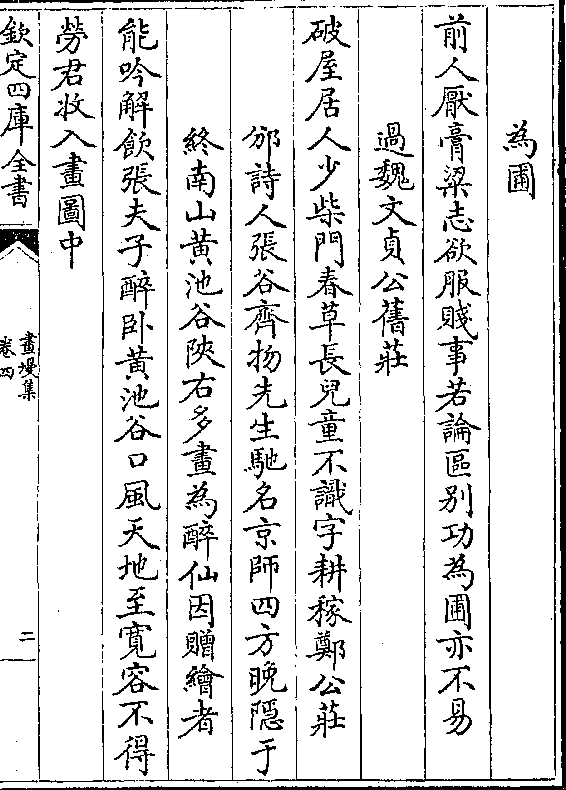 為圃
前人厭膏粱志欲服賤事若論區别功為圃亦不易
過魏文貞公舊莊
破屋居人少柴門春草長兒童不識字耕稼鄭公莊
邠詩人張谷齊物先生馳名京師四方晚隠于
終南山黄池谷陜右多畫為醉仙因贈繪者
能吟解飲張夫子醉卧黄池谷口風天地至寛容不得
勞君收入畫圖中
欽定四庫全書
畫墁集
卷四
二